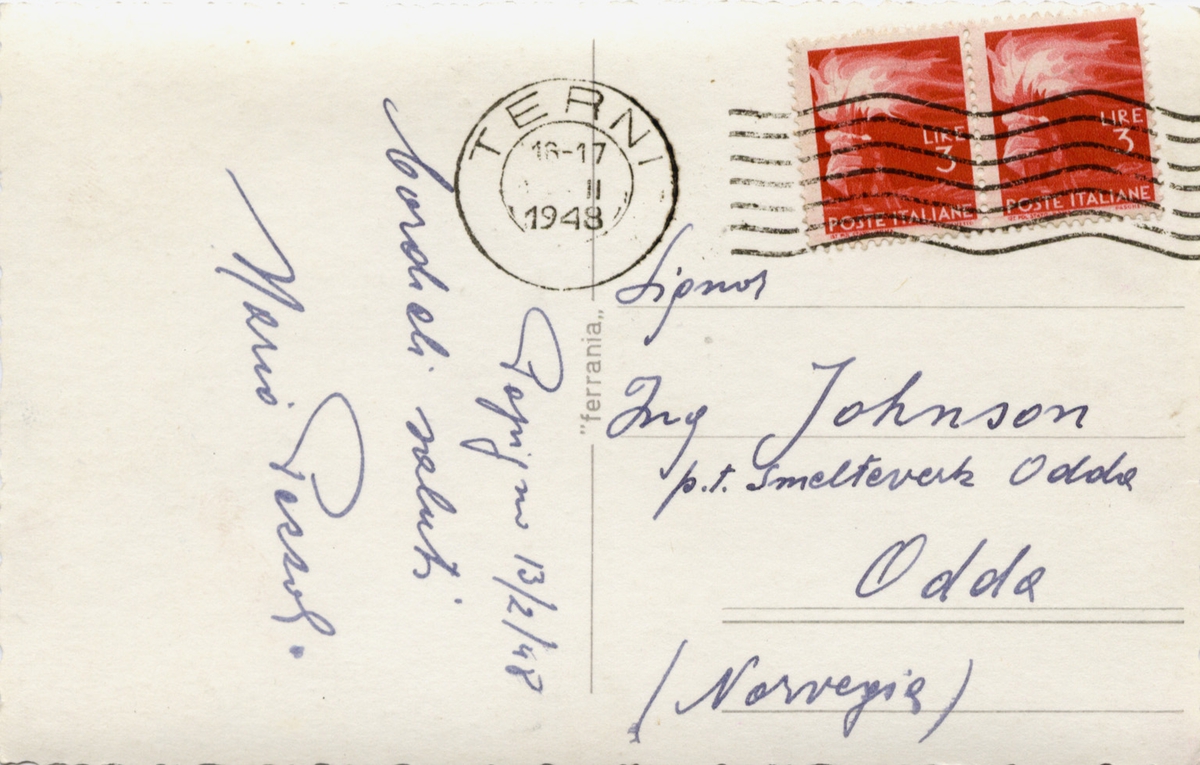 Papigno 13/2/48
Cordiali saluti
Mario
TERNI
16-17
II
1948
LIRE
3
POSTE ITALIANE
LIRE
3
POSTE ITALIANE
"ferrania"
Signor
Ing Johnson
p.t. Smelteverk Odda
Odda
(Norvegia)